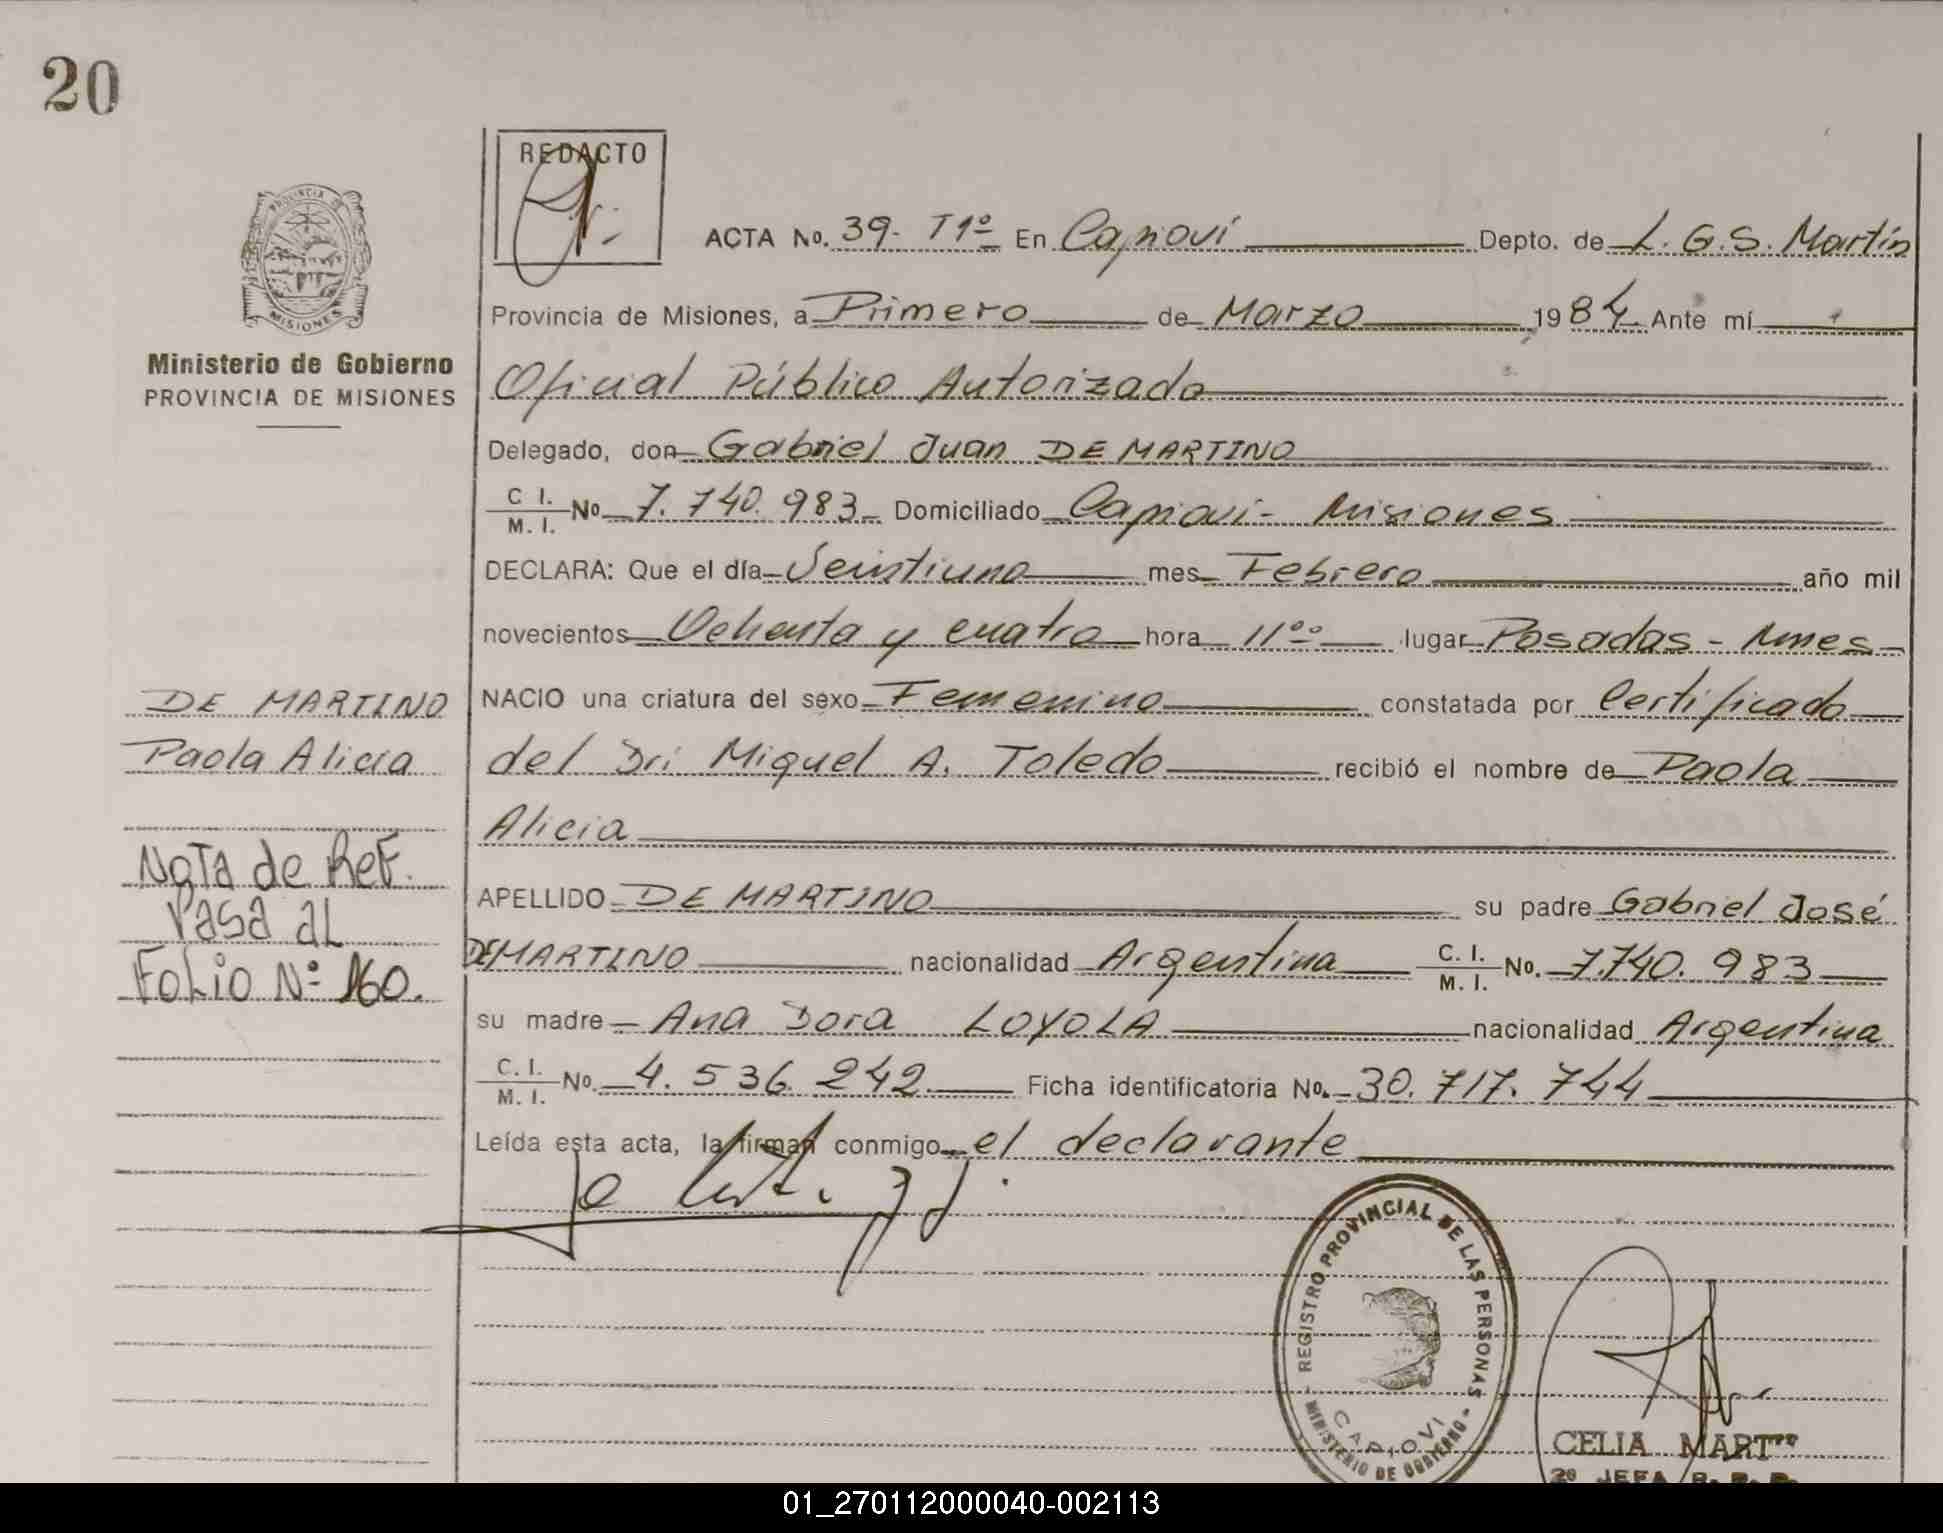 20
REDACTO
PROVINCIA DE
MISIONES
Ministerio de Gobierno
PROVINCIA DE MISIONES
ACTA No. 39- T1º En Capioví Depto. de L. G. S. Martín
Provincia de Misiones, a Primero de Marzo 1984 Ante mí
Oficial Público Autorizado
Delegado, don Gabriel Juan DE MARTINO
C I. M. I. No 7.740.983 Domiciliado Capioví- Misiones
DECLARA: Que el día Veintiuno mes Febrero año mil
novecientos Ochenta y cuatro hora 11ºº lugar Posadas - Mnes
NACIO una criatura del sexo Femenino constatada por Certificado
del Dr: Miguel A. Toledo recibió el nombre de Paola
Alicia
APELLIDO DE MARTINO su padre Gabriel José
DE MARTINO nacionalidad Argentina C. I. M. I. No. 7.740.983
su madre Ana Dora LOYOLA nacionalidad Argentina
C. I. M. I. No. 4.536.242 Ficha identificatoria No. 30.717.744
Leída esta acta, la firman conmigo el declarante
DE MARTINO
Paola Alicia
NOTA de REF.
PASA AL
FOLIO Nº 160.
REGISTRO PROVINCIAL DE LAS PERSONAS
MINISTERIO DE GOBIERNO
CAPIOVI
CELIA MART
2º JEFA R. P. P.
01_270112000040-002113